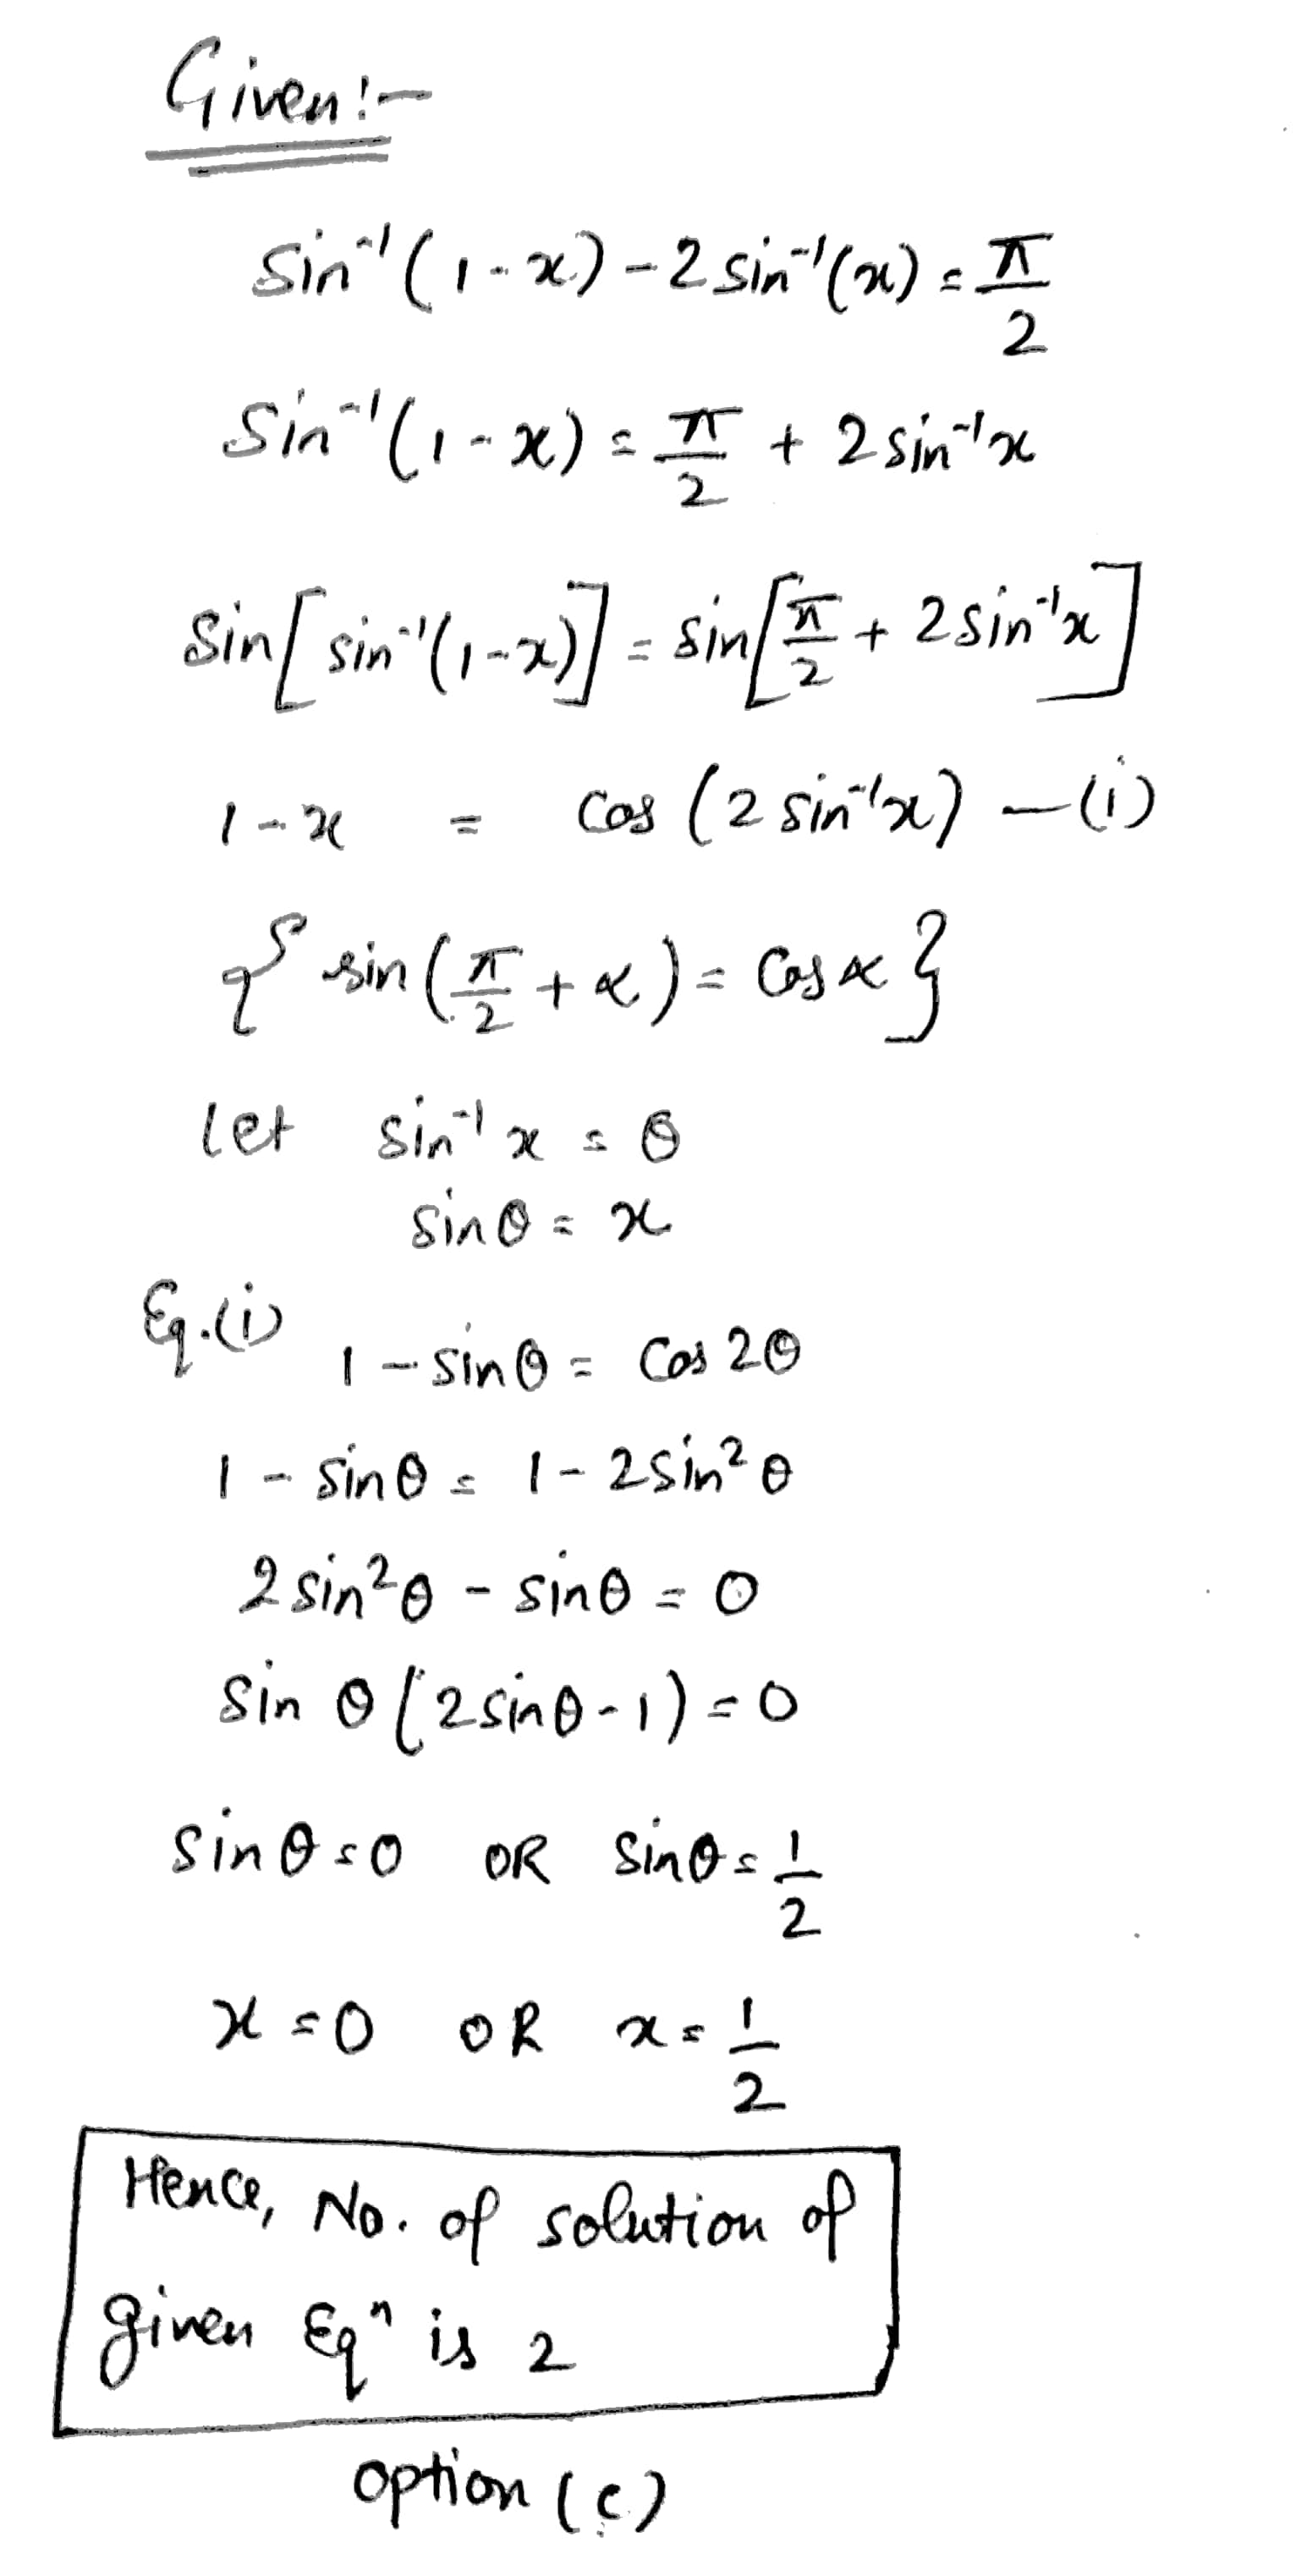 Given:-
Sin⁻¹(1-x) - 2 sin⁻¹(x) = π/2
Sin⁻¹(1-x) = π/2 + 2 sin⁻¹x
Sin[sin⁻¹(1-x)] = sin[π/2 + 2 sin⁻¹x]
1-x = Cos (2 sin⁻¹x) —(i)
{ sin(π/2 + α) = Cos α }
let sin⁻¹ x = θ
sinθ = x
Eq.(i)
1 - sinθ = Cos 2θ
1 - sinθ = 1 - 2sin²θ
2 sin²θ - sinθ = 0
Sin θ (2sinθ-1) = 0
Sinθ = 0 OR Sinθ = 1/2
x = 0 OR x = 1/2
Hence, No. of solution of
given Eqⁿ is 2
option (c)